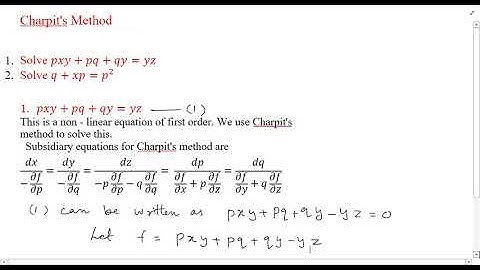 Charpit's Method
1. Solve pxy + pq + qy = yz
2. Solve q + xp = p²
1. pxy + pq + qy = yz —— (1)
This is a non - linear equation of first order. We use Charpit's
method to solve this.
Subsidiary equations for Charpit's method are
dx/(-∂f/∂p) = dy/(-∂f/∂q) = dz/(-p ∂f/∂p - q ∂f/∂q) = dp/(∂f/∂x + p ∂f/∂z) = dq/(∂f/∂y + q ∂f/∂z)
(1) can be written as pxy + pq + qy - yz = 0
Let f = pxy + pq + qy - yz